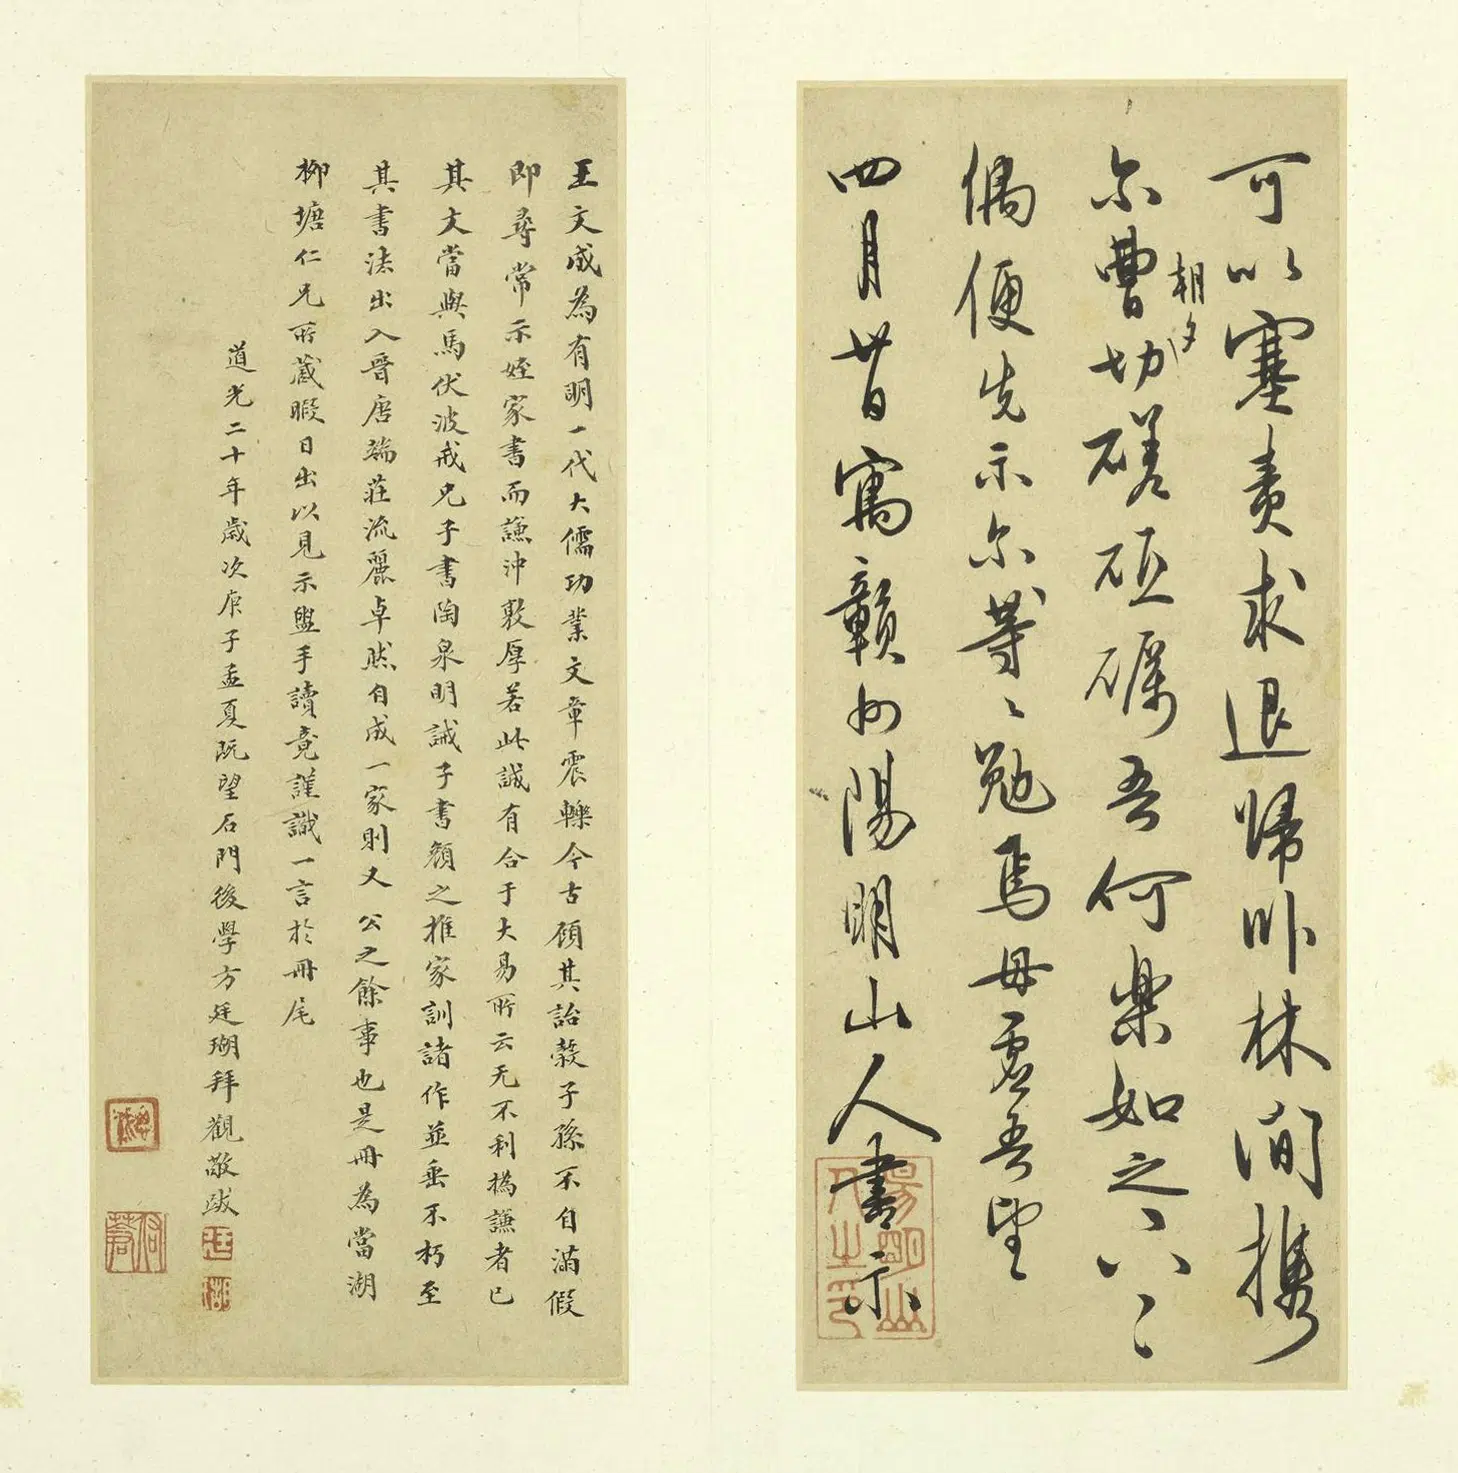 可以塞責求退歸卧林間携
尔曹朝夕切磋砥礪吾何樂如之六〻
偶便先示尔等〻勉焉毋虚吾望
四月廿日寓贛州陽明山人書示
王文成為有明一代大儒功業文章震轢今古顧其詒穀子孫不自滿假
即尋常示姪家書而謙沖敦厚若此誠有合于大易所云无不利撝謙者已
其文當與馬伏波戒兄子書陶泉明誡子書顏之推家訓諸作並垂不朽至
其書法出入晉唐端莊流麗卓然自成一家則又公之餘事也是冊為當湖
柳塘仁兄所藏暇日出以見示盥手讀竟謹識一言於冊尾
道光二十年歲次庚子孟夏既望石門後學方廷瑚拜觀敬跋